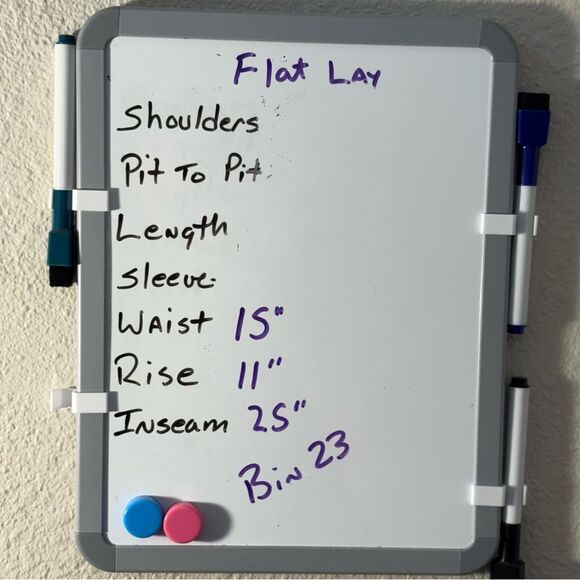 Flat Lay
Shoulders
Pit To Pit
Length
Sleeve
Waist 15"
Rise 11"
Inseam 25"
Bin 23